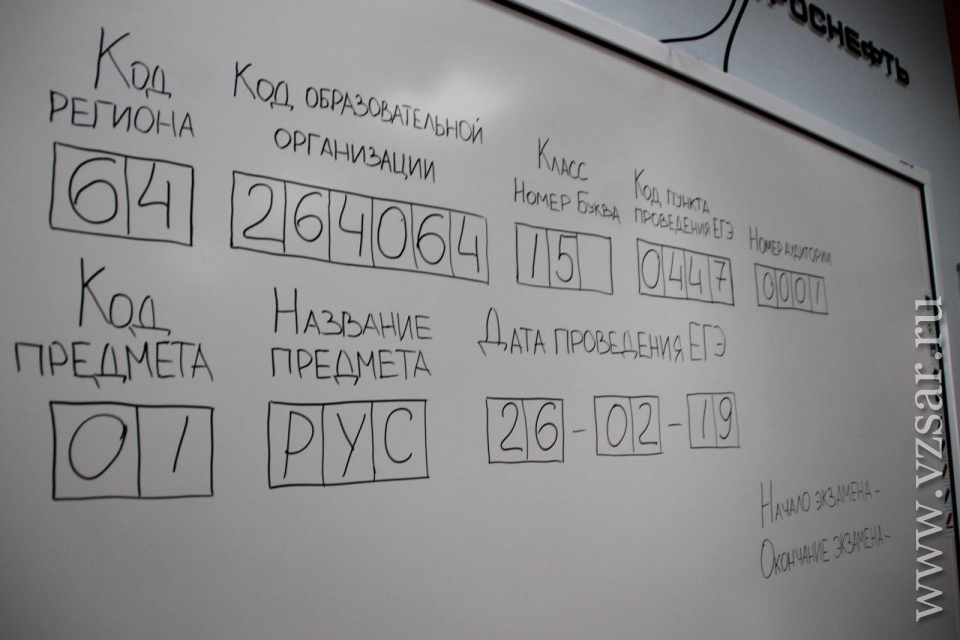 РОСНЕФТЬ
Код
РЕГИОНА
64
Код ОБРАЗОВАТЕЛЬНОЙ
ОРГАНИЗАЦИИ
264064
Класс
Номер Буква
15
Код пункта
проведения ЕГЭ
0447
Номер аудитории
0001
Код
ПРЕДМЕТА
01
НАЗВАНИЕ
ПРЕДМЕТА
РУС
Дата проведения ЕГЭ
26-02-19
Начало экзамена -
Окончание экзамена -
www.vzsar.ru